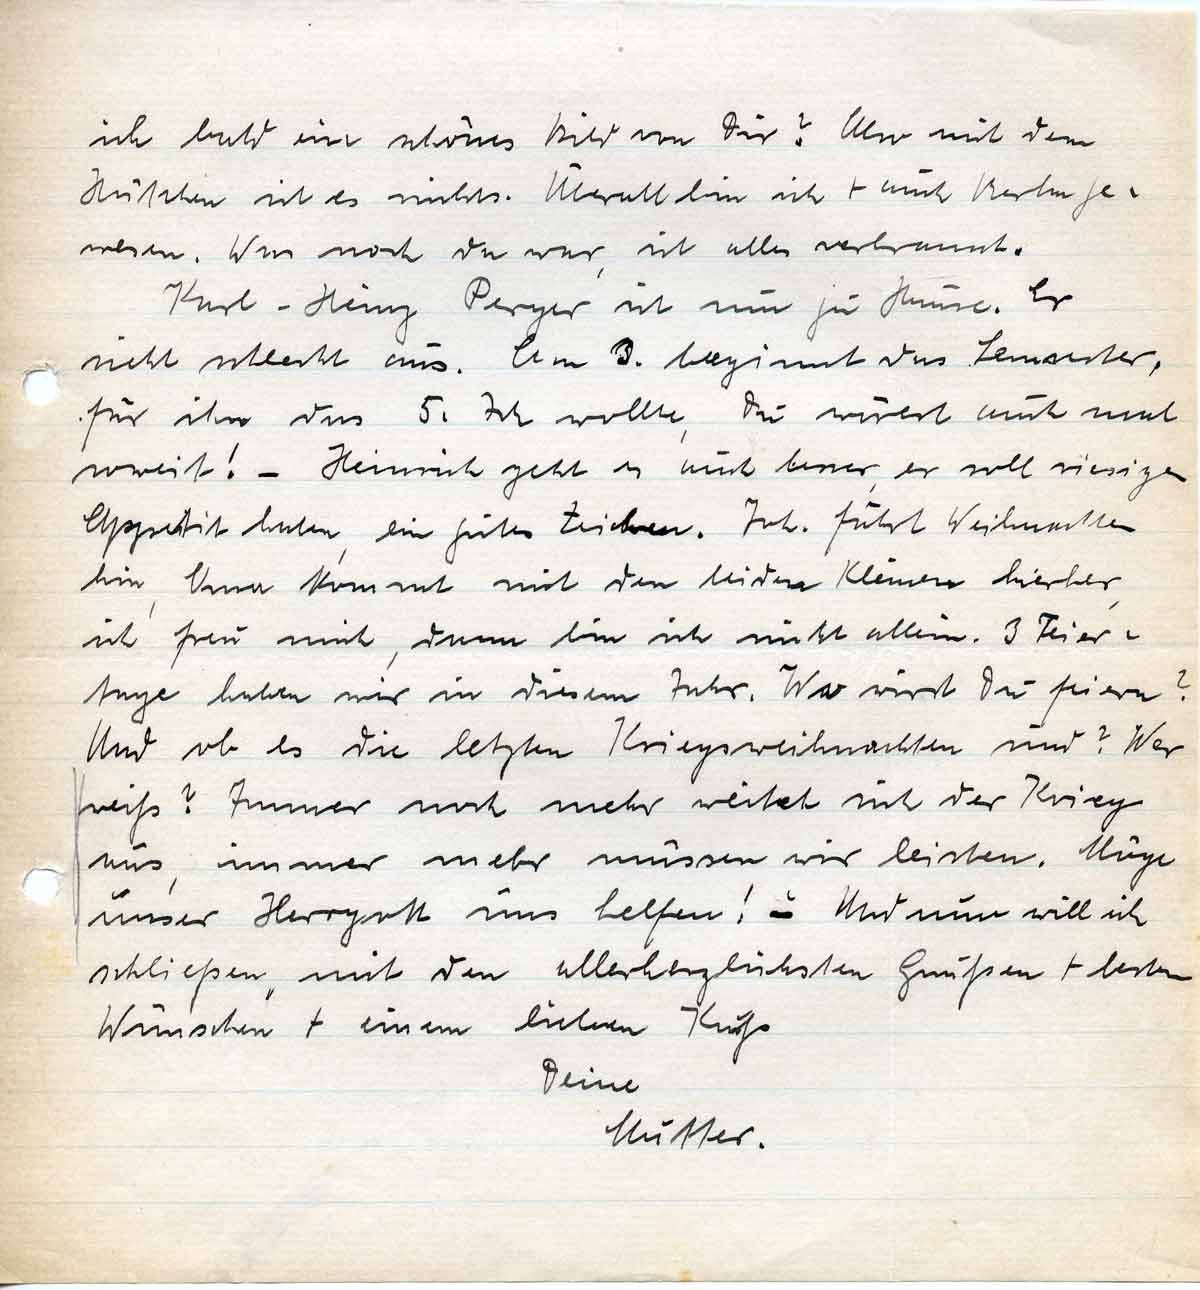 ich bald ein schönes Bild von Dir? Also mit dem
Hütchen ist es nichts. Überall bin ich + auch Martha ge-
wesen. Was noch da war, ist alles verbrannt.
Karl-Heinz Perger ist nun zu Hause. Er
sieht schlecht aus. Am 3. beginnt das Semester,
für ihn das 5. Ich wollte, Du wärest auch mal
soweit! – Heinrich geht es auch besser, er soll riesigen
Appetit haben, ein gutes Zeichen. Joh. fährt Weihnachten
hin, Oma kommt mit den beiden Kleinen hierher,
ich freu mich, dann bin ich nicht allein. 3 Feier-
tage haben wir in diesem Jahr. Wo wirst Du feiern?
Und ob es die letzten Kriegsweihnachten sind? Wer
weiß? Immer noch mehr weitet sich der Krieg
aus, immer mehr müssen wir leisten. Möge
unser Herrgott uns helfen! – Und nun will ich
schließen, mit den allerherzlichsten Grüßen + besten
Wünschen + einem lieben Kuß
Deine
Mutter.